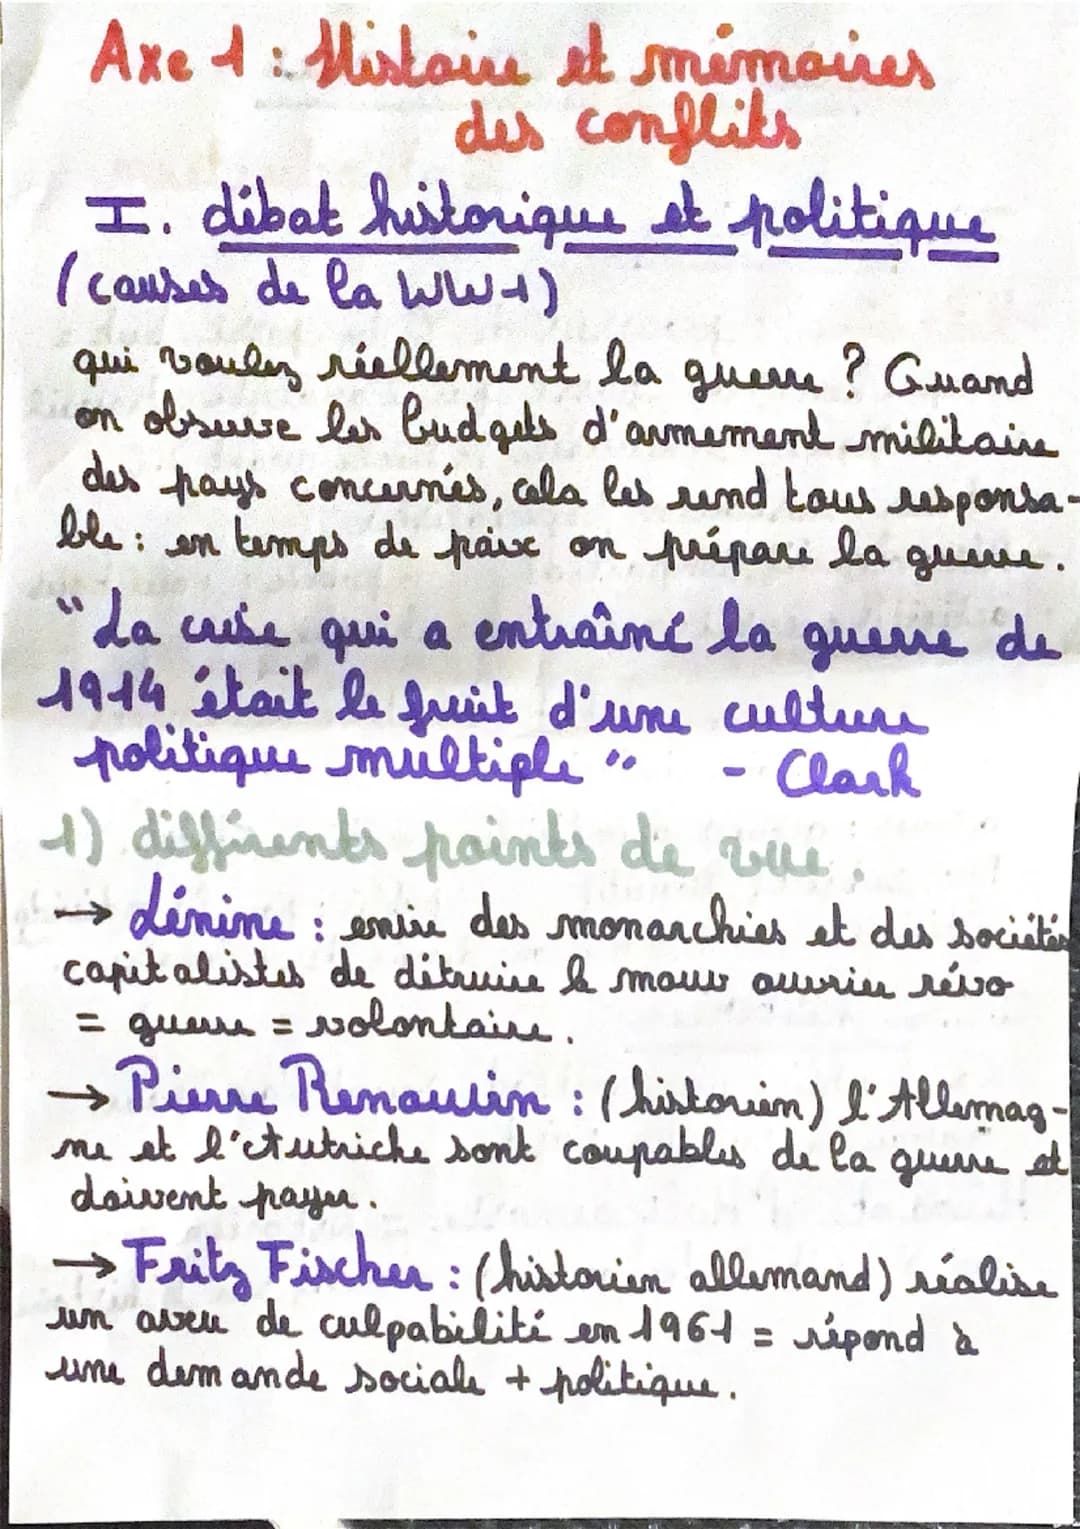 Axe 1 : Histoire et mémoires
des conflits
I. débat historique et politique
(causes de la WW1)
qui voulez réellement la guerre ? Quand
on observe les budgets d'armement militaire
des pays concernés, cela les rend tous responsa-
ble : en temps de paix on prépare la guerre.
"La crise qui a entraîné la guerre de
1914 était le fruit d'une culture
politique multiple" - Clark
1) différents points de vue.
→ Lénine : envie des monarchies et des sociétés
capitalistes de détruire le mouv ouvrier révo
= guerre = volontaire.
→ Pierre Renouvin : (historien) l'Allemag-
ne et l'Autriche sont coupables de la guerre et
doivent payer.
→ Fritz Fischer : (historien allemand) réalise
un aveu de culpabilité en 1961 = répond à
une demande sociale + politique.